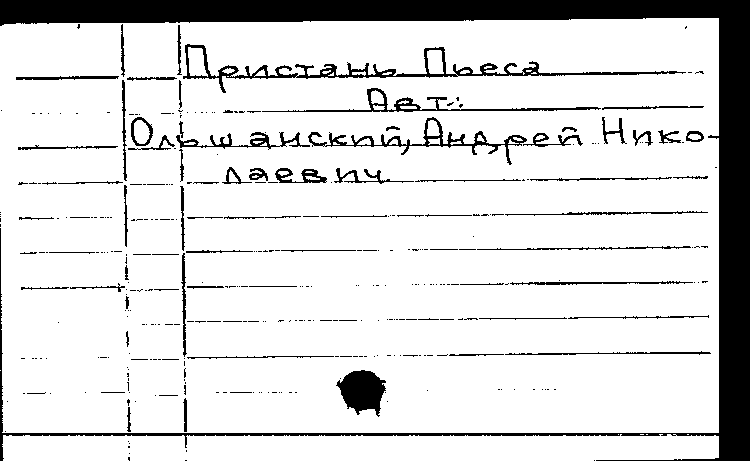 Пристань Пьеса
Авт.:
Ольшанский, Андрей Нико-
лаевич